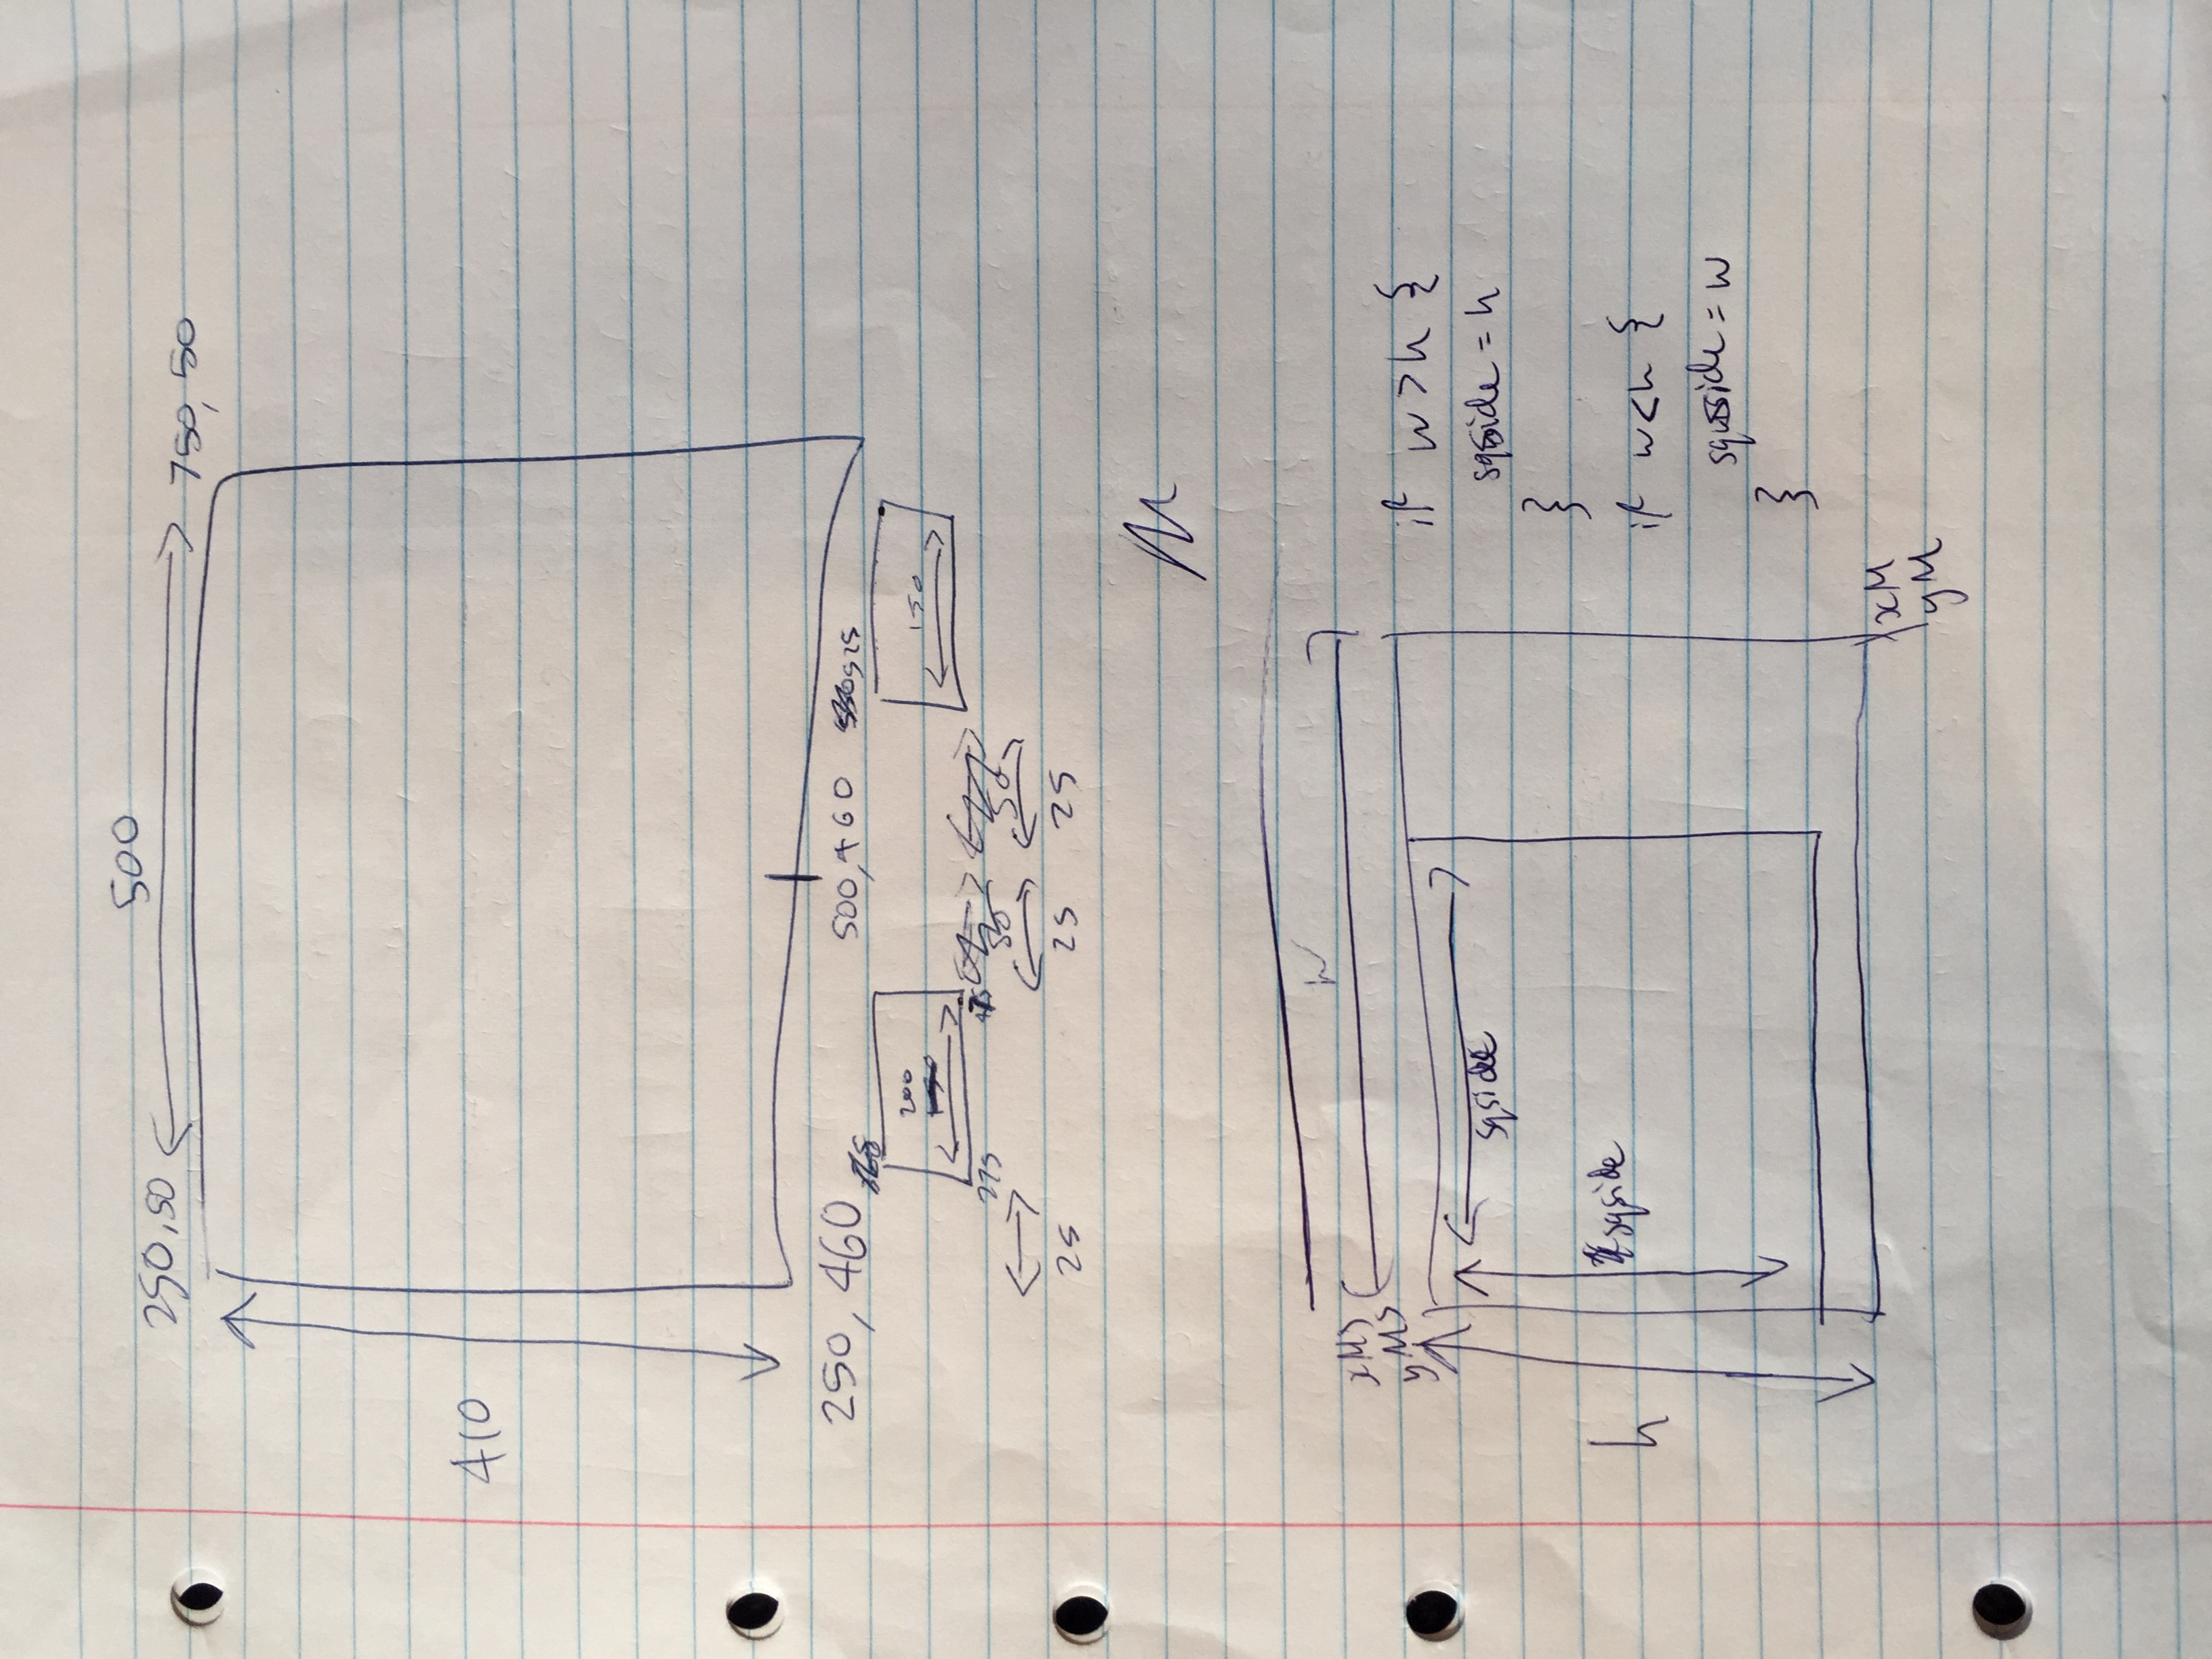 500
250,50
750, 50
410
250, 460
500,460
525
200
150
275
475
50
50
25
25
25
w
xMS
yMS
if w>h {
sqside
sqside = h
}
sqside
h
if w<h {
sqside = w
}
xM
yM